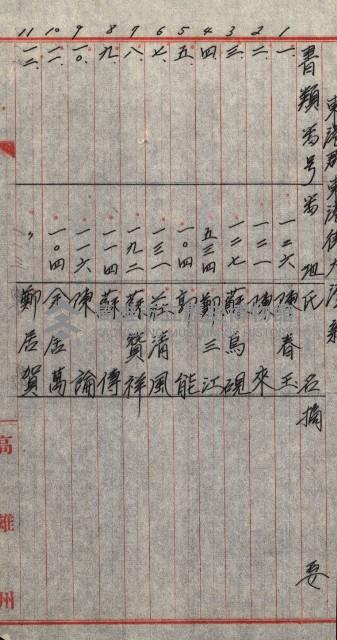 東港郡東港街大潭新
書類番号 番地 氏名 摘要
1 一 一二六 陳春玉
2 二 一二一 陳來
3 三 一二七 蘇烏硯
4 四 五三四 鄭三江
5 五 一〇四 郭能
6 七 一三一 莊清風
7 八 一九二 蘇贊祥
8 九 一一四 蘇傳
9 一〇 一一六 陳論
10 一一 一〇四 余居萬
11 一二 〃 鄭居賀
高雄州